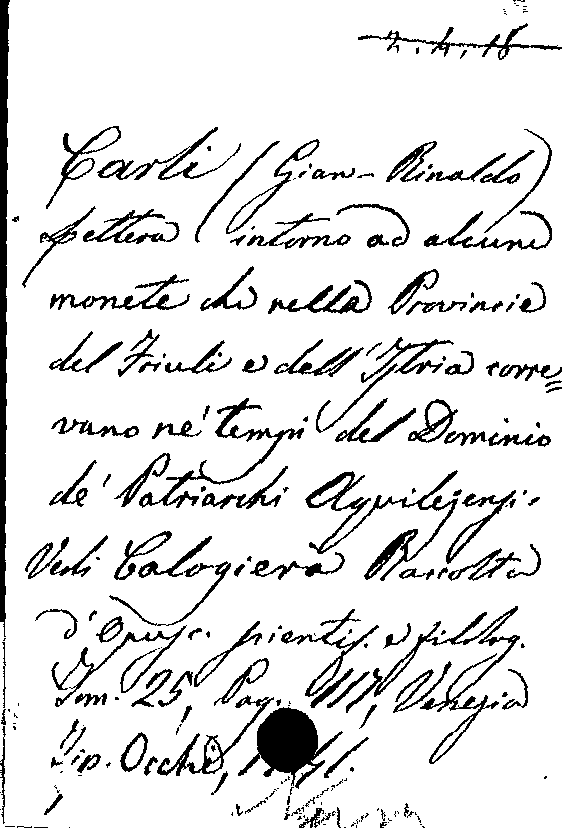 2. 4. 18
Carli (Gian-Rinaldo)
Lettera intorno ad alcune
monete che nella Provincie
del Friuli e dell'Istria corre=
vano ne' tempi del Dominio
de' Patriarchi Aquilejensi.
Vedi Calogierà Raccolta
d'Opusc. scientif. e filolog.
Tom. 25, Pag. 117, Venezia
Tip. Occhi,